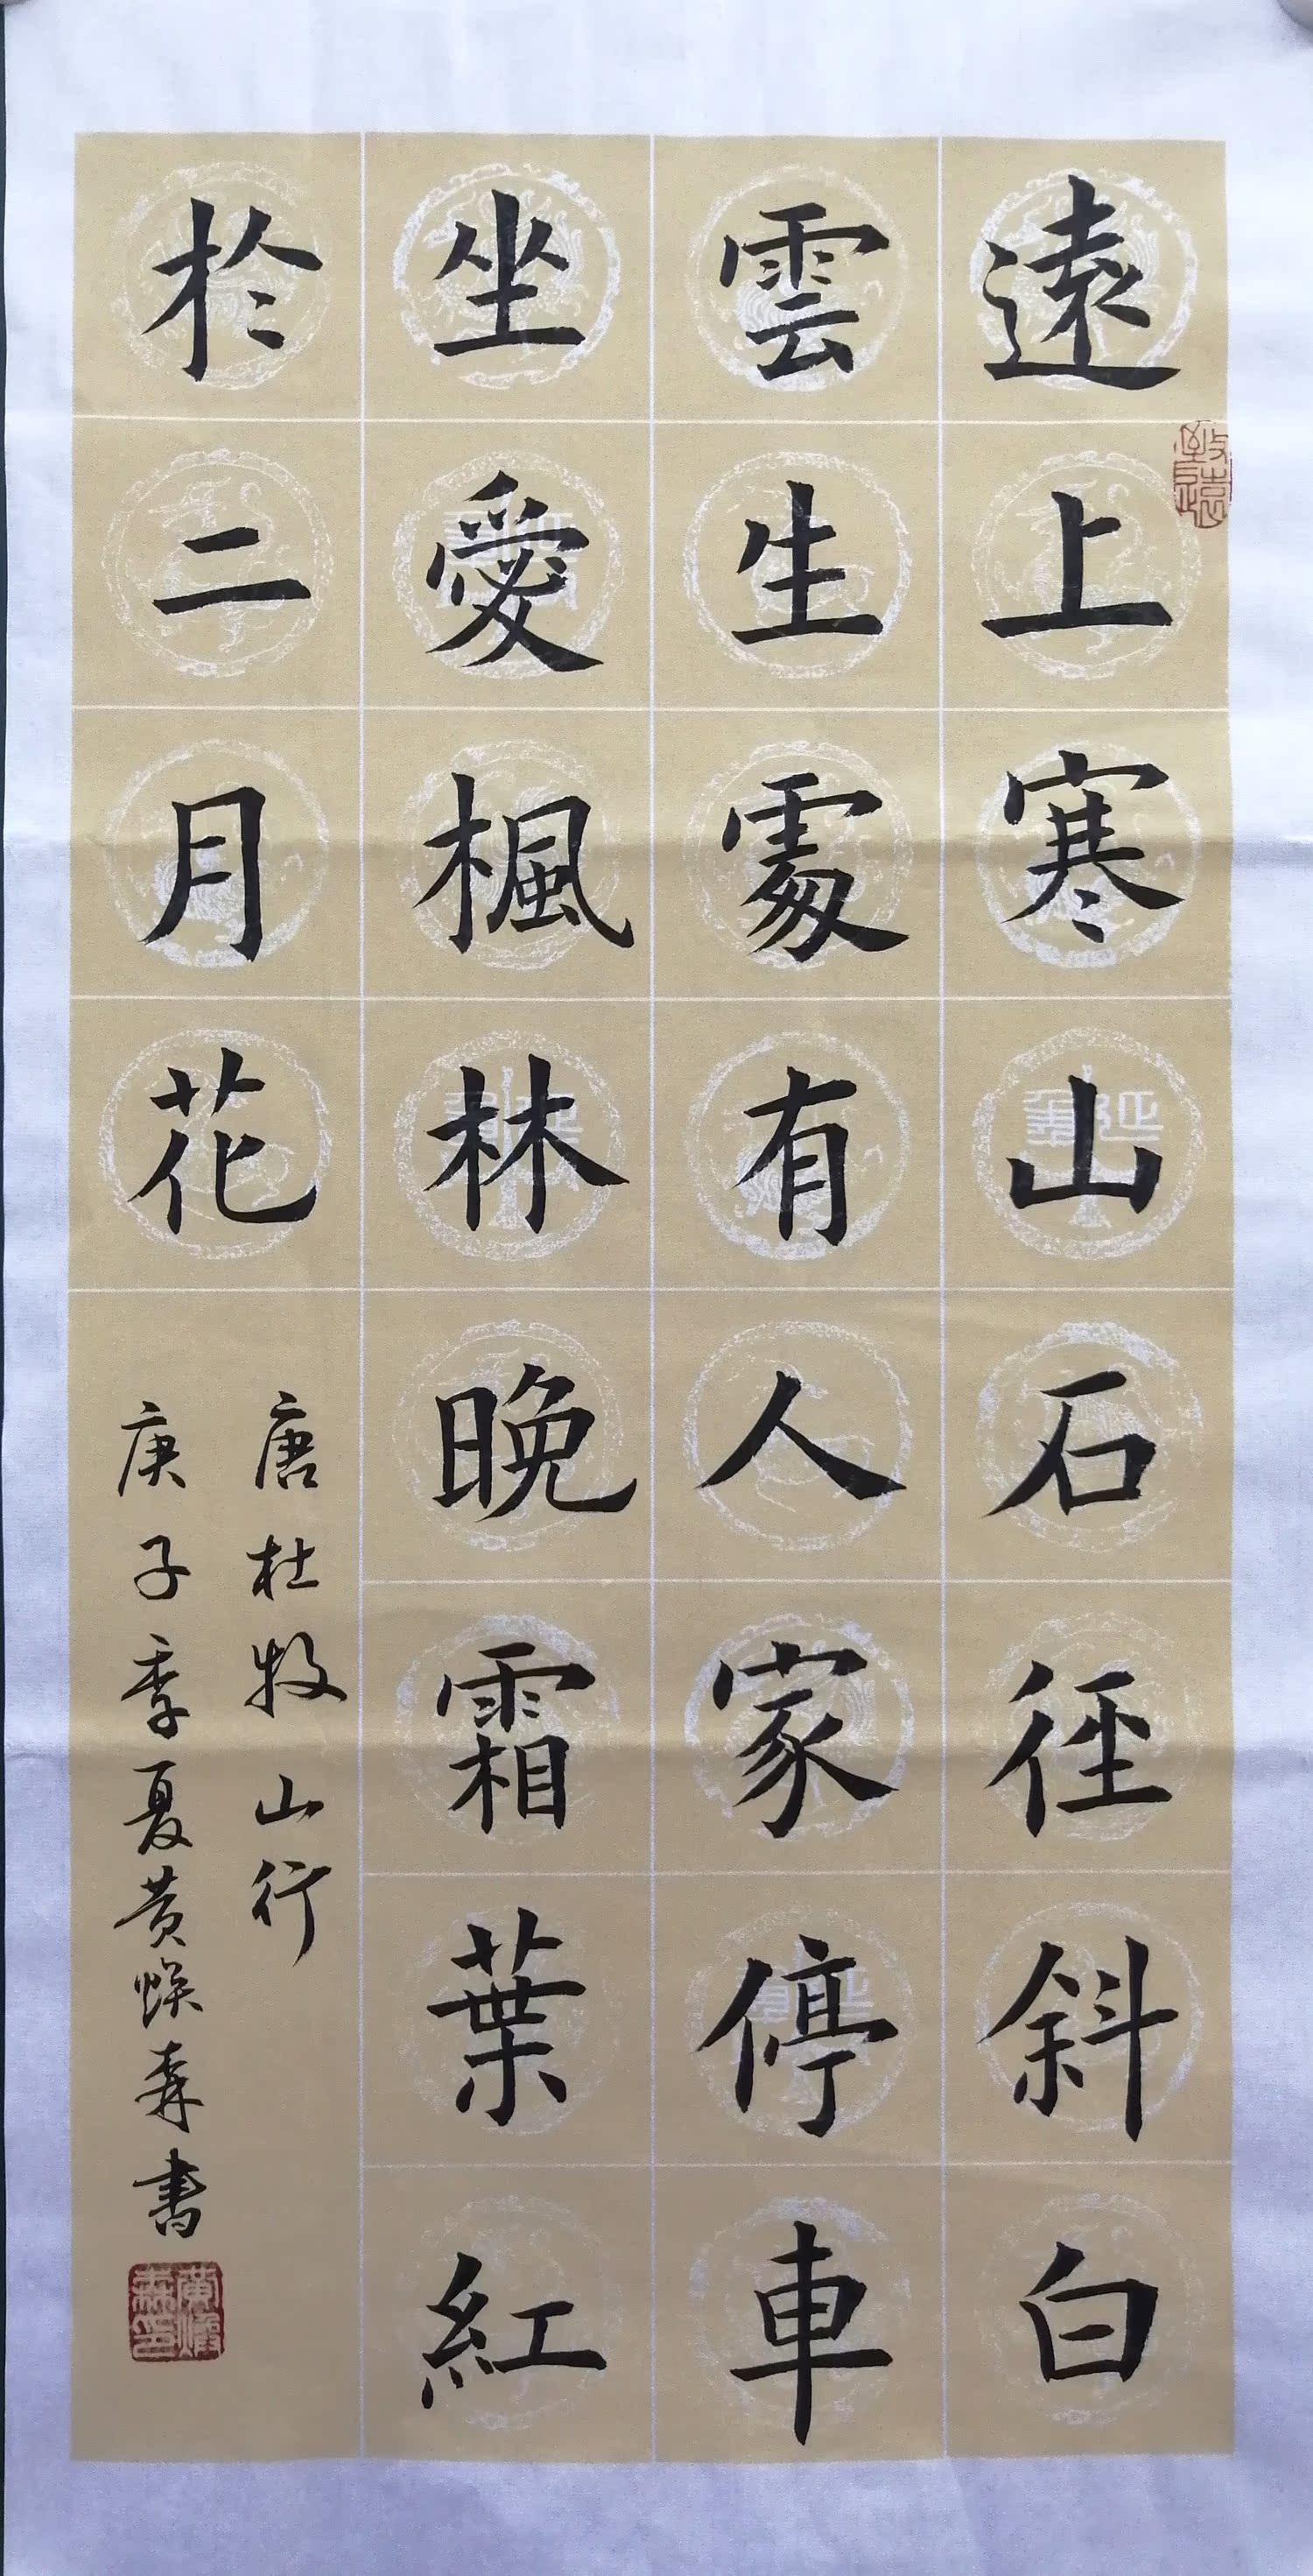 遠上寒山石徑斜白
雲生處有人家停車
坐愛楓林晚霜葉紅
於二月花
唐杜牧山行
庚子季夏黄焕森書